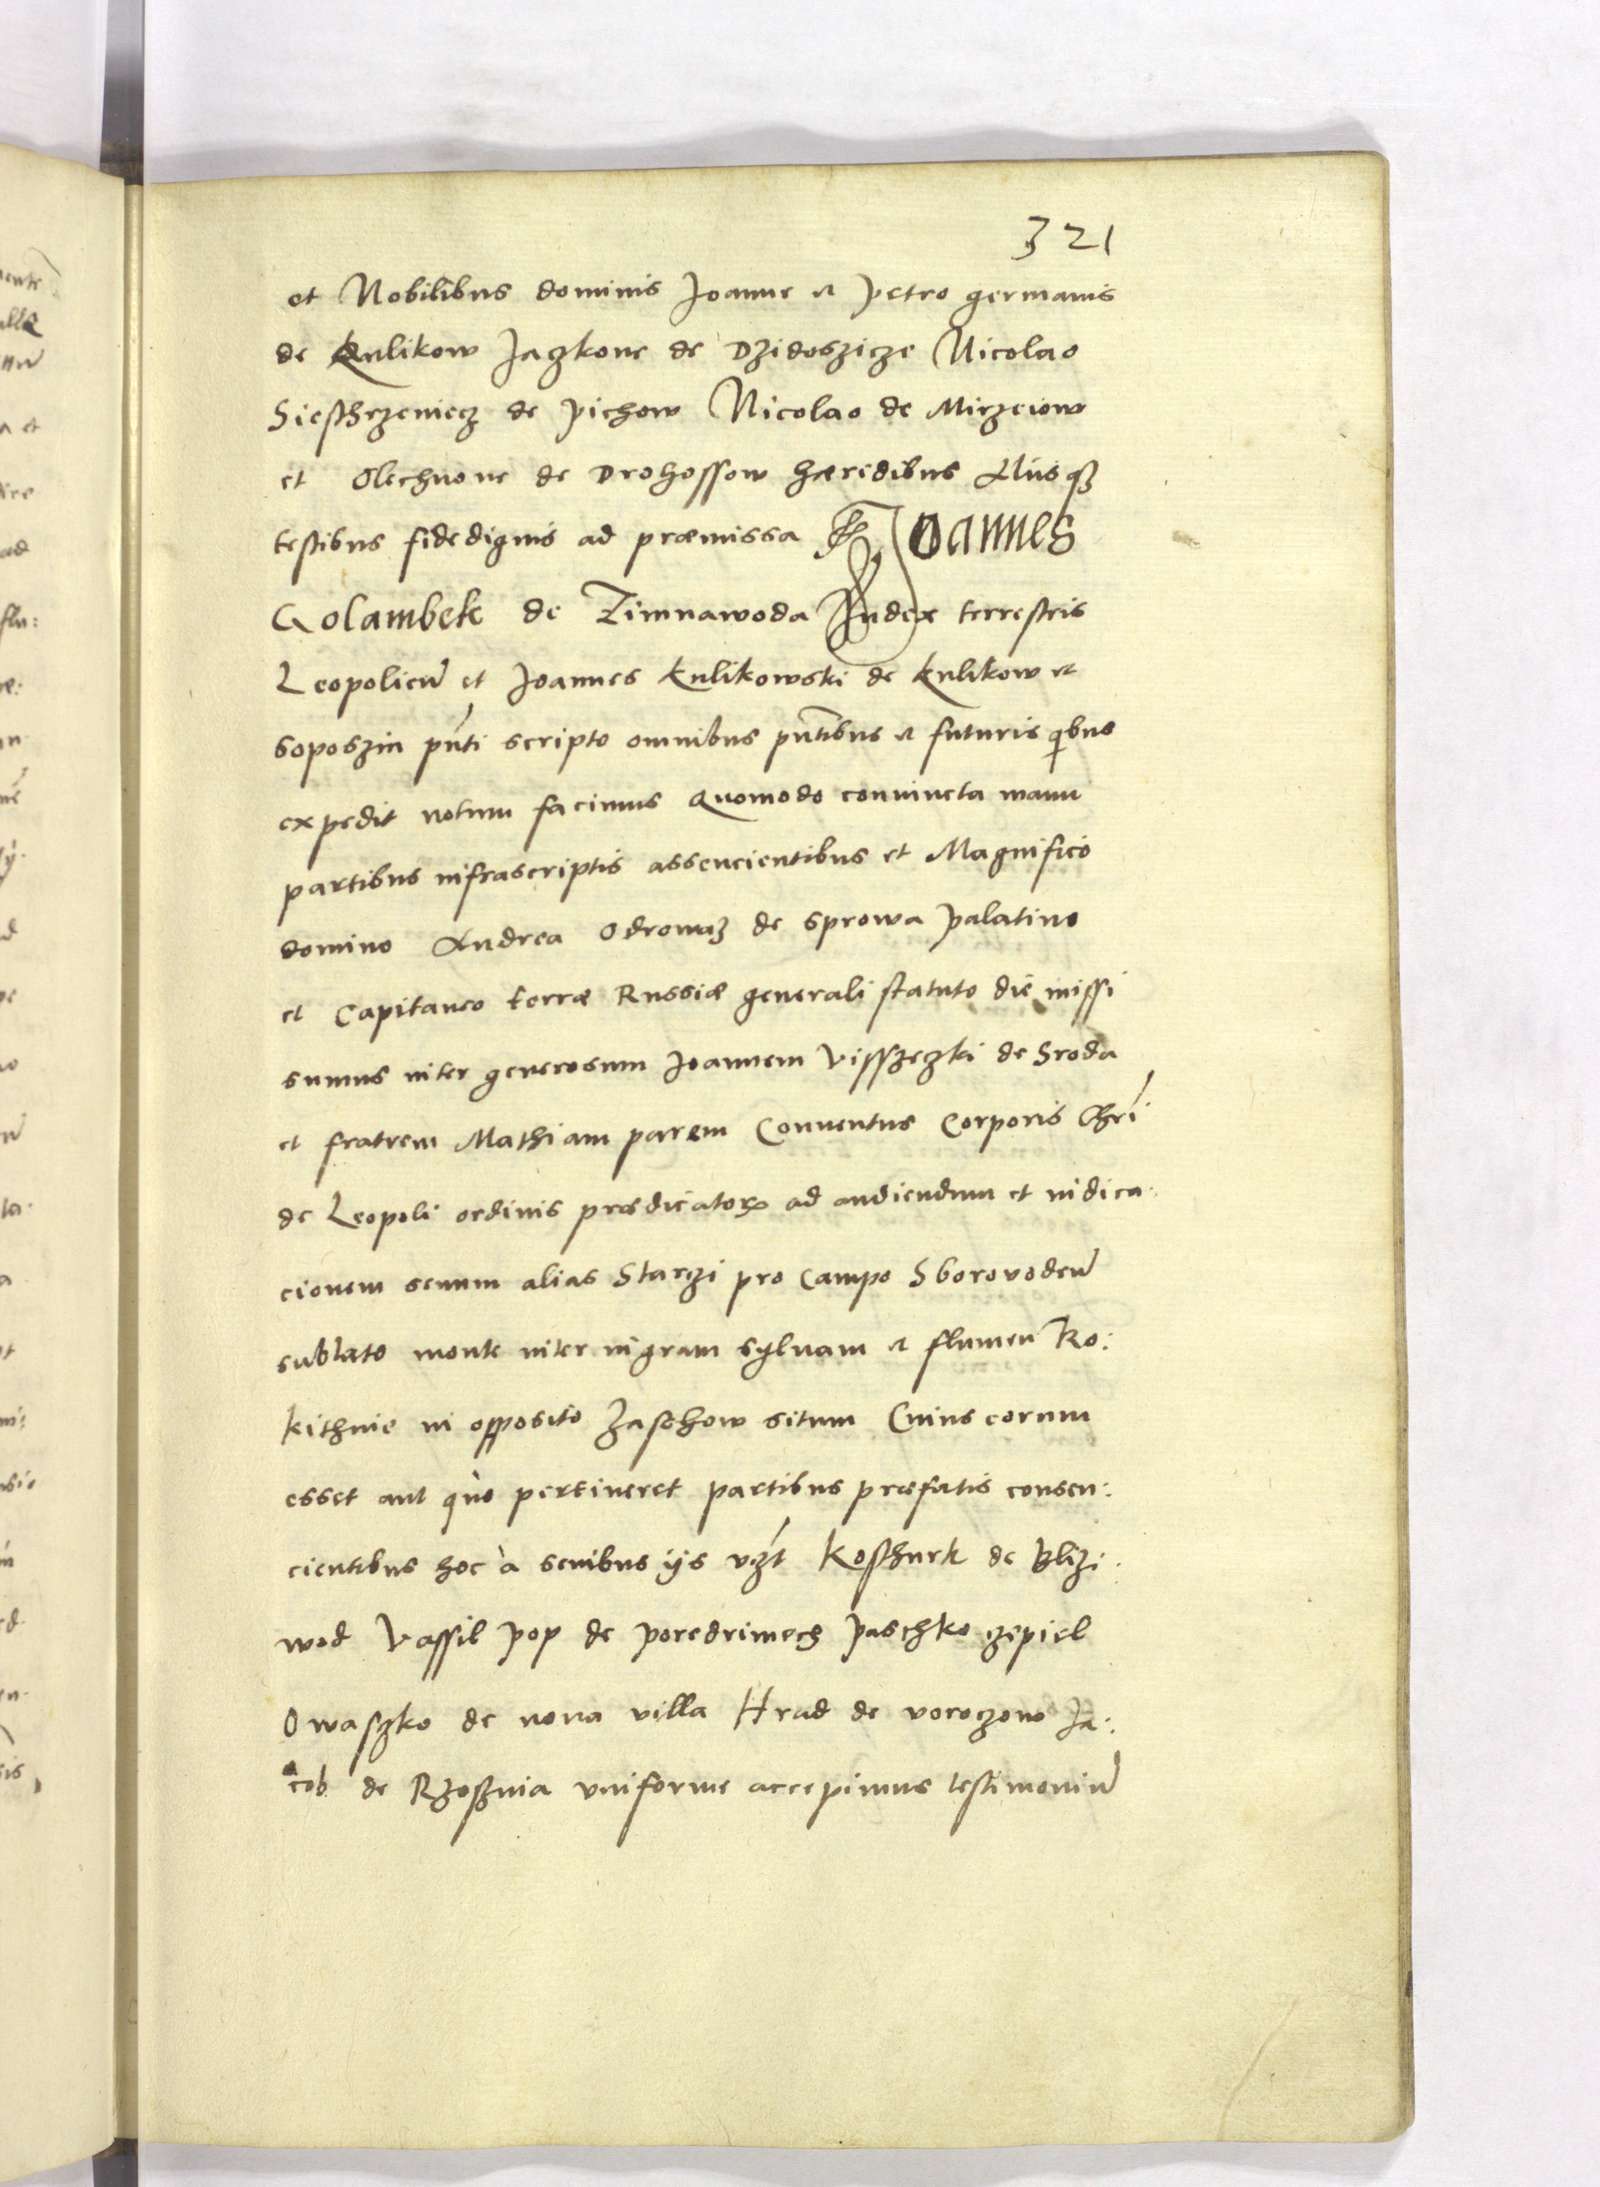 321
et Nobilibus dominis Joanne et Petro germanis
de Kulikow Jaczkone de Dzidoszicze Nicolao
Siestrzeniecz de Pichow Nicolao de Mirzeiow
et Olechnone de Drohossow hæredibus Aliisqȝ
testibus fidedignis ad præmissa Joannes
Golambek de Zimnawoda Iudex terrestris
Leopolien̄ et Joannes Kulikowski de Kulikow et
soposzin pn̄ti scripto omnibus pn̄tibus et futuris qibus
expedit notum facimus Quomodo conniuncta manu
partibus infrascriptis assencientibus et Magnifico
domino Andrea Odrowaz de sprowa palatino
et Capitaneo terræ Russiæ generali statuto die missi
sumus inter generosum Joannem Visszeczki de Sroda
et fratrem Mathiam parem Conuentus Corporis Chrī
de Leopoli ordinis prædicatorꝝ ad audiendum et iudica:
cionem senum alias Starzi pro Campo Sborovoden̄
sublato monte inter nigram syluam et flumen Ro:
kithnie in opposito Zaschow situm Cuius eorum
esset aut quo pertineret partibus præfatis consen:
cientibus hoc à senibus ijs vz̄t Koschurk de Blizi:
wod Vassil pop de poredrimech Paschko czepiel
Owaszko de noua villa Hrud de voroczow Ja:
cob de Rzosznia vniforme accepimus testimoniū